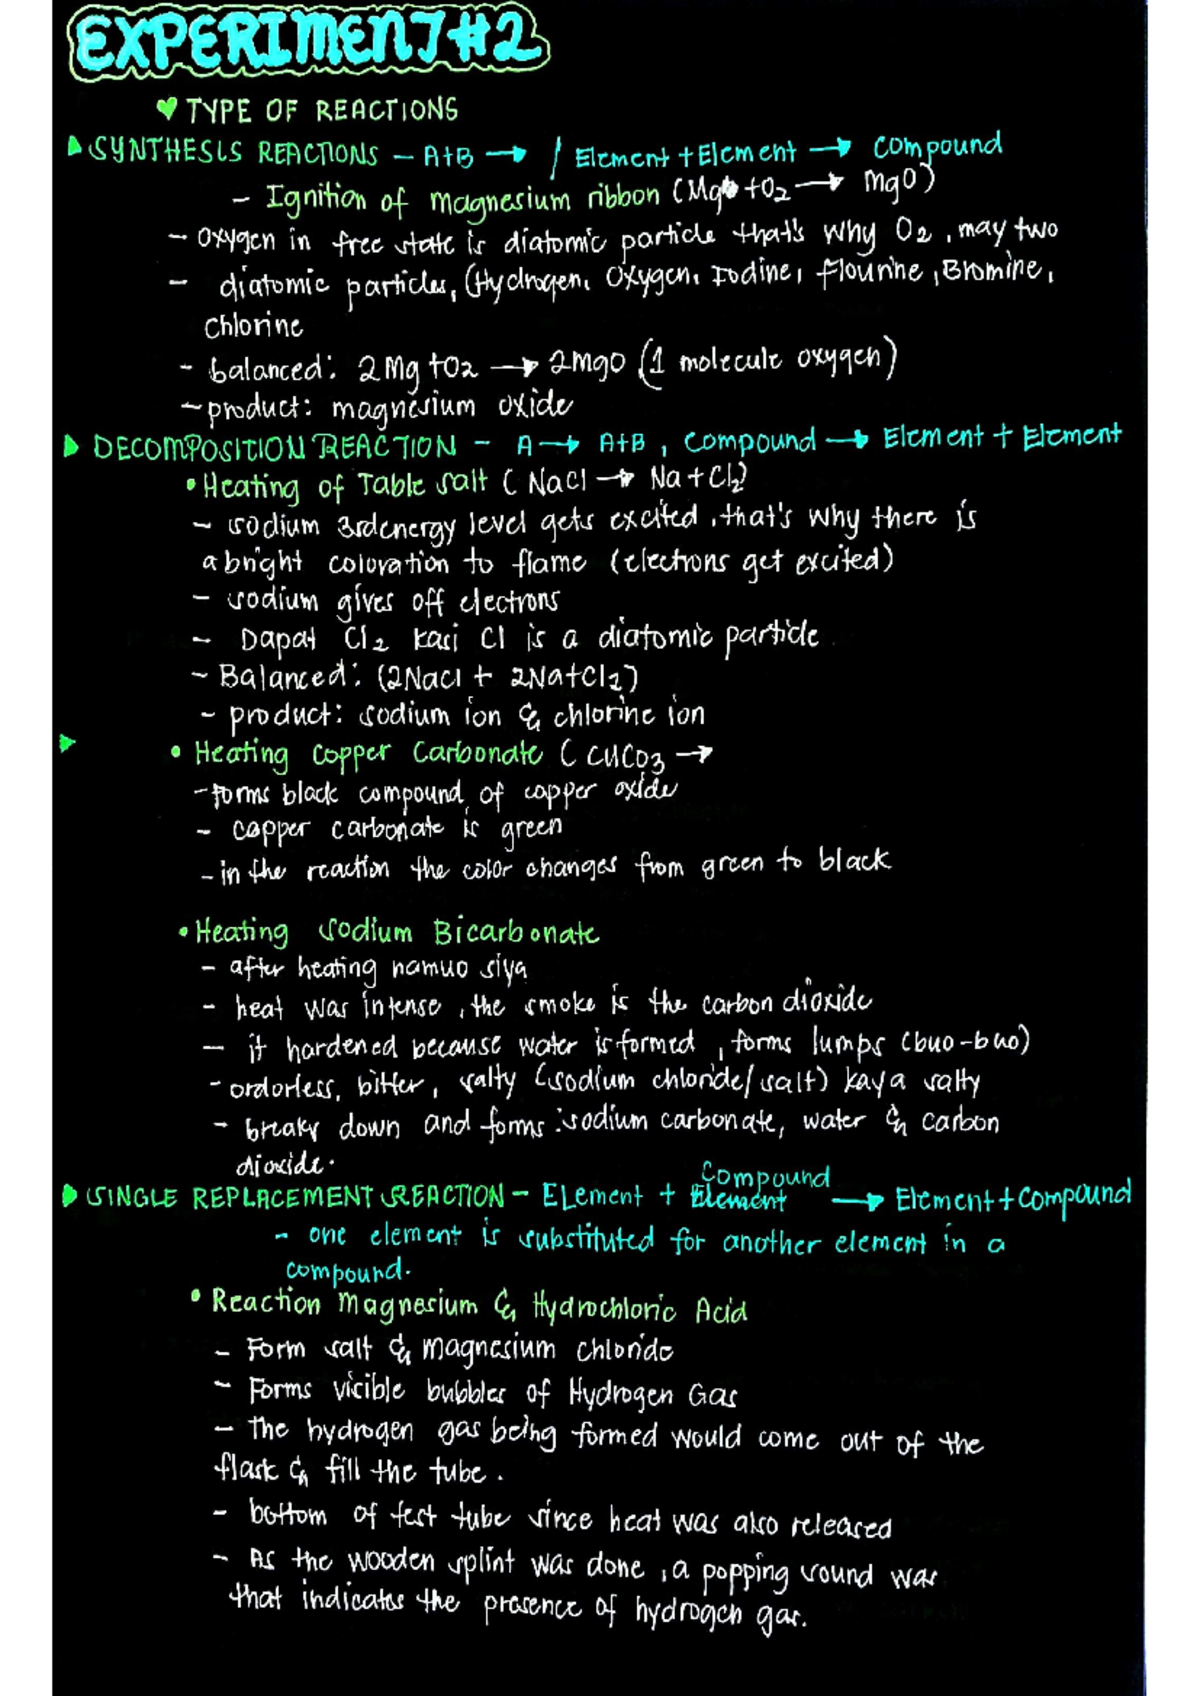 EXPERIMENT#2
TYPE OF REACTIONS
SYNTHESIS REACTIONS - A+B → / Element + Element → compound
- Ignition of magnesium ribbon (Mg + O2 → MgO)
- oxygen in free state is diatomic particle that's why O2, may two
- diatomic particles, (Hydrogen, Oxygen, Iodine, flourine, Bromine,
Chlorine
- balanced: 2Mg + O2 → 2MgO (1 molecule oxygen)
- product: magnesium oxide
DECOMPOSITION REACTION - A → A+B, compound → Element + Element
• Heating of Table salt (NaCl → Na + Cl2)
- sodium 3rd energy level gets excited, that's why there is
a bright coloration to flame (electrons get excited)
- sodium gives off electrons
- Dapat Cl2 kasi Cl is a diatomic particle
- Balanced: (2NaCl + 2Na+Cl2)
- product: sodium ion & chlorine ion
• Heating copper Carbonate (CuCO3 →
- forms black compound, of copper oxide
- copper carbonate is green
- in the reaction the color changes from green to black
• Heating sodium Bicarbonate
- after heating namuo siya
- heat was intense, the smoke is the carbon dioxide
- it hardened because water is formed, forms lumps (buo-buo)
- ordorless, bitter, salty (sodium chloride/salt) kaya salty
- breaks down and forms: sodium carbonate, water & carbon
dioxide.
SINGLE REPLACEMENT REACTION - Element + Element Compound → Element + Compound
- one element is substituted for another element in a
compound.
• Reaction Magnesium & Hydrochloric Acid
- Form salt & magnesium chloride
- Forms visible bubbles of Hydrogen Gas
- The hydrogen gas being formed would come out of the
flask & fill the tube.
- bottom of test tube since heat was also released
- As the wooden splint was done, a popping sound was
that indicates the presence of hydrogen gas.